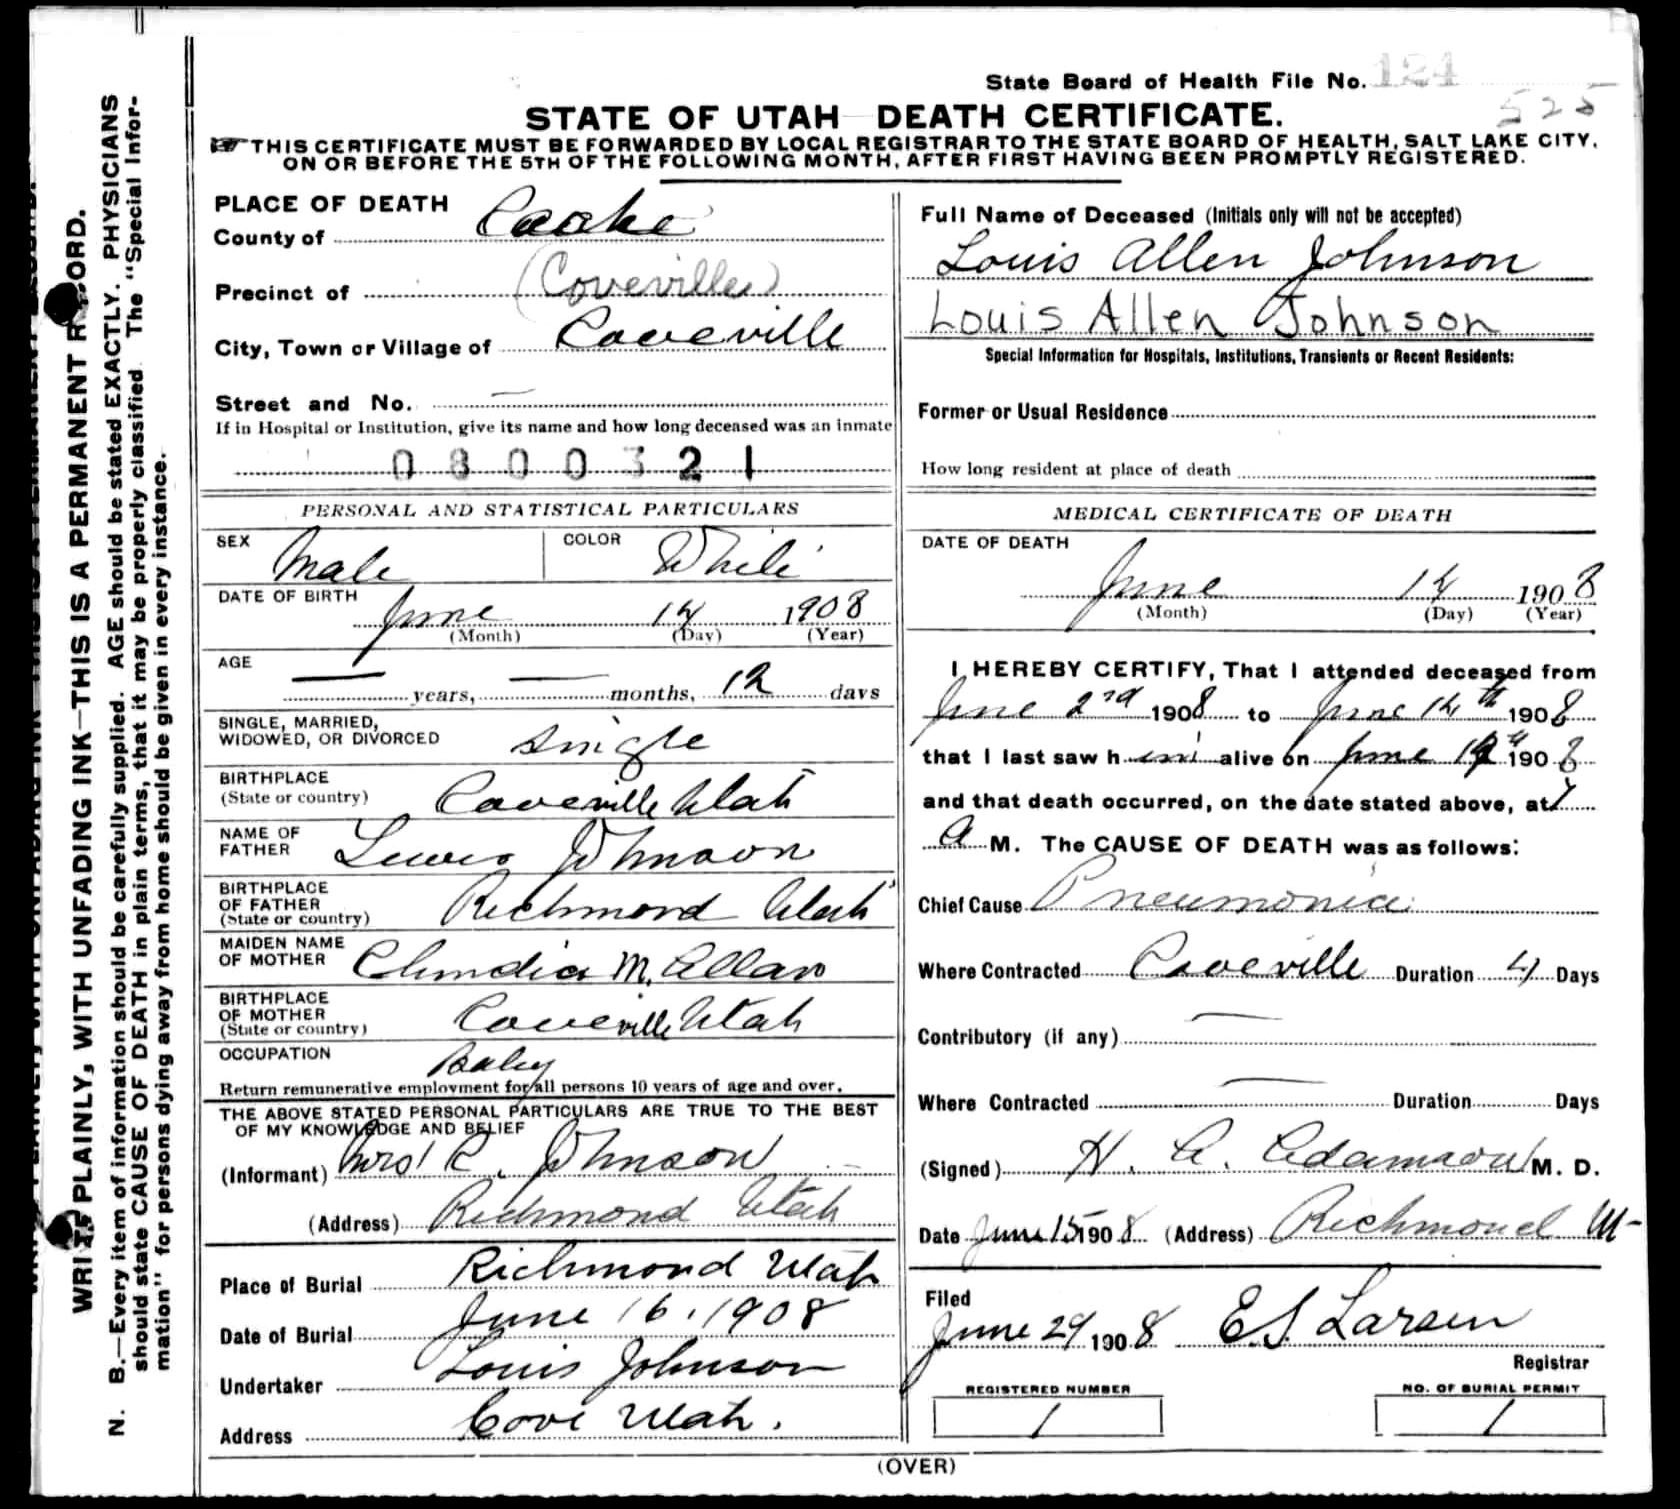 State Board of Health File No. 124
525
STATE OF UTAH DEATH CERTIFICATE.
THIS CERTIFICATE MUST BE FORWARDED BY LOCAL REGISTRAR TO THE STATE BOARD OF HEALTH, SALT LAKE CITY,
ON OR BEFORE THE 5TH OF THE FOLLOWING MONTH, AFTER FIRST HAVING BEEN PROMPTLY REGISTERED.
WRITE PLAINLY, WITH UNFADING INK—THIS IS A PERMANENT RECORD.
N. B.—Every item of information should be carefully supplied. AGE should be stated EXACTLY. PHYSICIANS
should state CAUSE OF DEATH in plain terms, that it may be properly classified. The "Special Infor-
mation" for persons dying away from home should be given in every instance.
PLACE OF DEATH
County of Cache
Precinct of (Coveville)
City, Town or Village of Coveville
Street and No. —
If in Hospital or Institution, give its name and how long deceased was an inmate
0800321
PERSONAL AND STATISTICAL PARTICULARS
SEX Male COLOR White
DATE OF BIRTH June 14 1908
(Month) (Day) (Year)
AGE — years, — months, 12 days
SINGLE, MARRIED,
WIDOWED, OR DIVORCED Single
BIRTHPLACE
(State or country) Coveville Utah
NAME OF
FATHER Lewis Johnson
BIRTHPLACE
OF FATHER
(State or country) Richmond Utah
MAIDEN NAME
OF MOTHER M. Allan
BIRTHPLACE
OF MOTHER
(State or country) Coveville Utah
OCCUPATION Baby
Return remunerative employment for all persons 10 years of age and over.
THE ABOVE STATED PERSONAL PARTICULARS ARE TRUE TO THE BEST
OF MY KNOWLEDGE AND BELIEF
(Informant) Mrs R. Johnson
(Address) Richmond Utah
Place of Burial Richmond Utah
Date of Burial June 16, 1908
Undertaker Louis Johnson
Address Cove Utah.
Full Name of Deceased (Initials only will not be accepted)
Louis Allen Johnson
Louis Allen Johnson
Special Information for Hospitals, Institutions, Transients or Recent Residents:
Former or Usual Residence
How long resident at place of death
MEDICAL CERTIFICATE OF DEATH
DATE OF DEATH
June 14 1908
(Month) (Day) (Year)
I HEREBY CERTIFY, That I attended deceased from
June 2nd 1908 to June 14th 1908
that I last saw him alive on June 1908
and that death occurred, on the date stated above, at
a M. The CAUSE OF DEATH was as follows:
Chief Cause Pneumonia
Where Contracted Coveville Duration 4 Days
Contributory (if any) —
Where Contracted — Duration Days
(Signed) H. A. Adamson M. D.
Date June 15 1908 (Address) Richmond U-
Filed
June 29 1908 E S. Larsen
Registrar
REGISTERED NUMBER
1
NO. OF BURIAL PERMIT
1
(OVER)